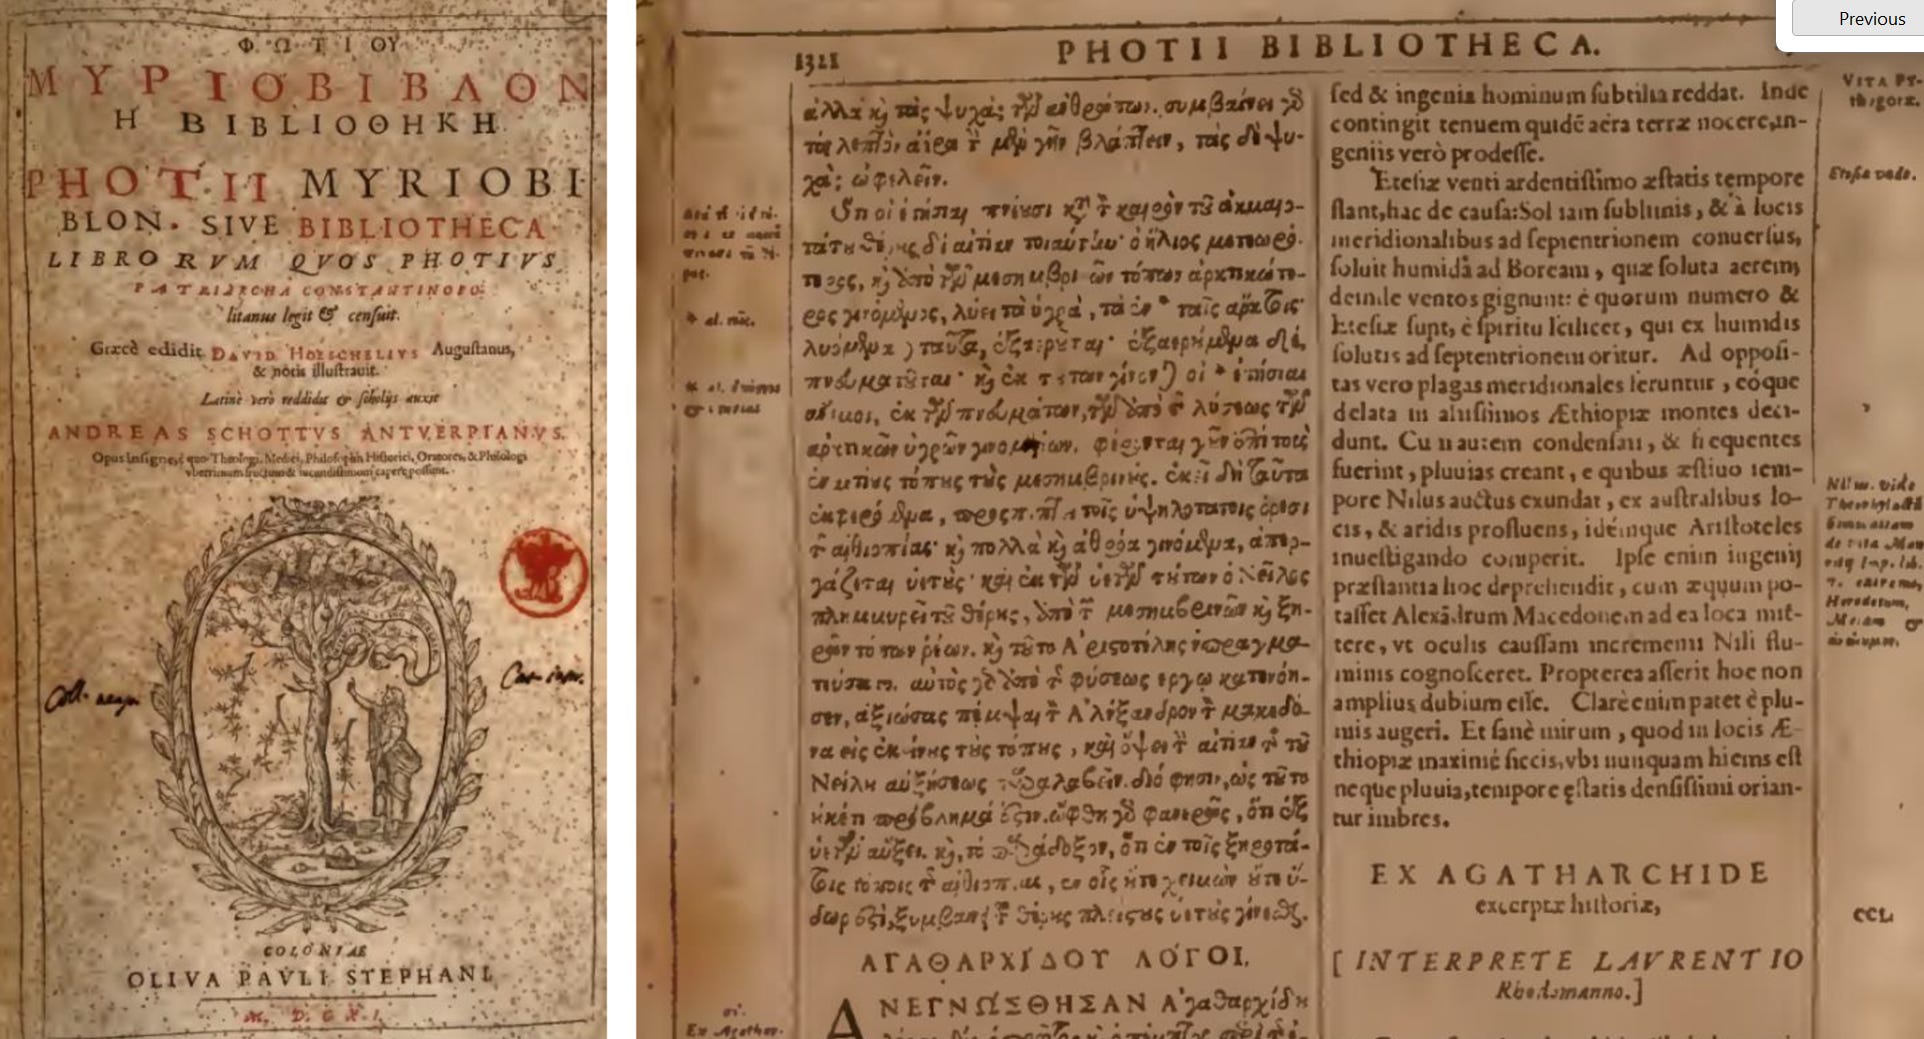 ΦΩΤΙΟΥ
ΜΥΡΙΟΒΙΒΛΟΝ
Η ΒΙΒΛΙΟΘΗΚΗ
PHOTII MYRIOBI
BLON. SIVE BIBLIOTHECA
LIBRORVM QVOS PHOTIVS
PATRIARCHA CONSTANTINOPO-
litanus legit & censuit.
Græcè edidit DAVID HOESCHELIVS Augustanus,
& notis illustrauit.
Latinè verò reddidit & scholijs auxit
ANDREAS SCHOTTVS ANTVERPIANVS.
Opus insigne, è quo Theologi, Medici, Philosophi, Historici, Oratores, & Philologi
vberrimum fructum & iucundissimum capere possint.
COLONIAE
OLIVA PAVLI STEPHANI.
M. D. C XI.
Previous
1321
PHOTII BIBLIOTHECA.
ἀλλὰ καὶ τὰς ψυχὰς τῶν ἀνθρώπων. συμβαίνει γὰρ
τὸν λεπτὸν ἀέρα τὴν μὲν γῆν βλάπτειν, τὰς δὲ ψυ-
χὰς ὠφελεῖν.
Ὅτι οἱ ἐτησίαι πνέουσι κατὰ τὸν καιρὸν τοῦ ἀκμαιο-
τάτου θέρους δι' αἰτίαν τοιαύτην· ὁ ἥλιος μετεωρό-
τερος, καὶ ἀπὸ τῶν μεσημβρινῶν τόπων ἀρκτικώτε-
ρος γινόμενος, λύει τὰ ὑγρὰ, τὰ ἐν * ταῖς ἄρκτοις·
λυόμενα ταῦτα, ἐξαεροῦται· ἐξαερούμενα
πνευματοῦται· καὶ ἐκ τούτων γίνονται οἱ * ἐτήσιαι
ἄνεμοι, ἐκ τῶν πνευμάτων, τῶν ἀπὸ τῆς λύσεως τῶν
ἀρκτικῶν ὑγρῶν γινομένων.
τόπους τοὺς μεσημβρινούς. ἐκεῖ δὴ ταῦτα
τοῖς ὑψηλοτάτοις ὄρεσι
τῆς αἰθιοπίας· καὶ πολλὰ καὶ ἀθρόα γινόμενα, ἀπερ-
γάζεται ὑετούς· καὶ ἐκ τῶν ὑετῶν τούτων ὁ Νεῖλος
πλημμυρεῖ τοῦ θέρους, ἀπὸ τῶν μεσημβρινῶν καὶ ξη-
ρῶν τόπων ῥέων. καὶ τοῦτο Ἀριστοτέλης ἐπραγμα-
τεύσατο. αὐτὸς γὰρ ἀπὸ τῆς φύσεως ἔργῳ κατενόη-
σεν, ἀξιώσας πέμψαι τὸν Ἀλέξανδρον τὸν μακεδό-
να εἰς ἐκείνους τοὺς τόπους, καὶ ὄψει τὴν αἰτίαν τῆς τοῦ
Νείλου αὐξήσεως παραλαβεῖν. διό φησιν, ὡς τοῦτο
οὐκέτι πρόβλημά ἐστιν. ὤφθη γὰρ φανερῶς, ὅτι ἐξ
ὑετῶν αὔξει. καὶ, τὸ παράδοξον, ὅτι ἐν τοῖς ξηροτά-
τοις τόποις τῆς αἰθιοπίας, ἐν οἷς οὔτε χειμὼν οὔτε ὕ-
δωρ ἐστὶ, ξυμβαίνει τοῦ θέρους πλείστους ὑετοὺς γίνεσθαι.
ΑΓΑΘΑΡΧΙΔΟΥ ΛΟΓΟΙ.
ΑΝΕΓΝΩΣΘΗΣΑΝ Ἀγαθαρχίδου
* al. τοῖς.
Ex Agathar.
sed & ingenia hominum subtilia reddat. Inde
contingit tenuem quidē aëra terræ nocere, in-
geniis verò prodesse.
Etesiæ venti ardentissimo æstatis tempore
flant, hac de causa: Sol iam sublimis, & à locis
meridionalibus ad septentrionem conuersus,
soluit humida ad Boream, quæ soluta aerem,
deinde ventos gignunt: è quorum numero &
Etesiæ sunt, è spiritu scilicet, qui ex humidis
solutis ad septentrionem oritur. Ad opposi-
tas vero plagas meridionales feruntur, eóque
delata in altissimos Æthiopiæ montes deci-
dunt. Cum autem condensati, & frequentes
fuerint, pluuias creant, e quibus æstiuo tem-
pore Nilus auctus exundat, ex australibus lo-
cis, & aridis profluens, idémque Aristoteles
inuestigando comperit. Ipse enim ingenij
præstantia hoc deprehendit, cum æquum pu-
tasset Alexādrum Macedonem ad ea loca mit-
tere, vt oculis caussam incrementi Nili flu-
minis cognosceret. Propterea asserit hoc non
amplius dubium esse. Clarè enim patet è plu-
uiis augeri. Et sanè mirum, quod in locis Æ-
thiopiæ maximè siccis, vbi nunquam hiems est
neque pluuia, tempore ęstatis densissimi orian-
tur imbres.
EX AGATHARCHIDE
excerptæ historiæ,
[INTERPRETE LAVRENTIO
Rhodomanno.]
VITA PY-
thagoræ.
Etesiæ vnde.
Nilus. vide
Herodotum,
CCL.